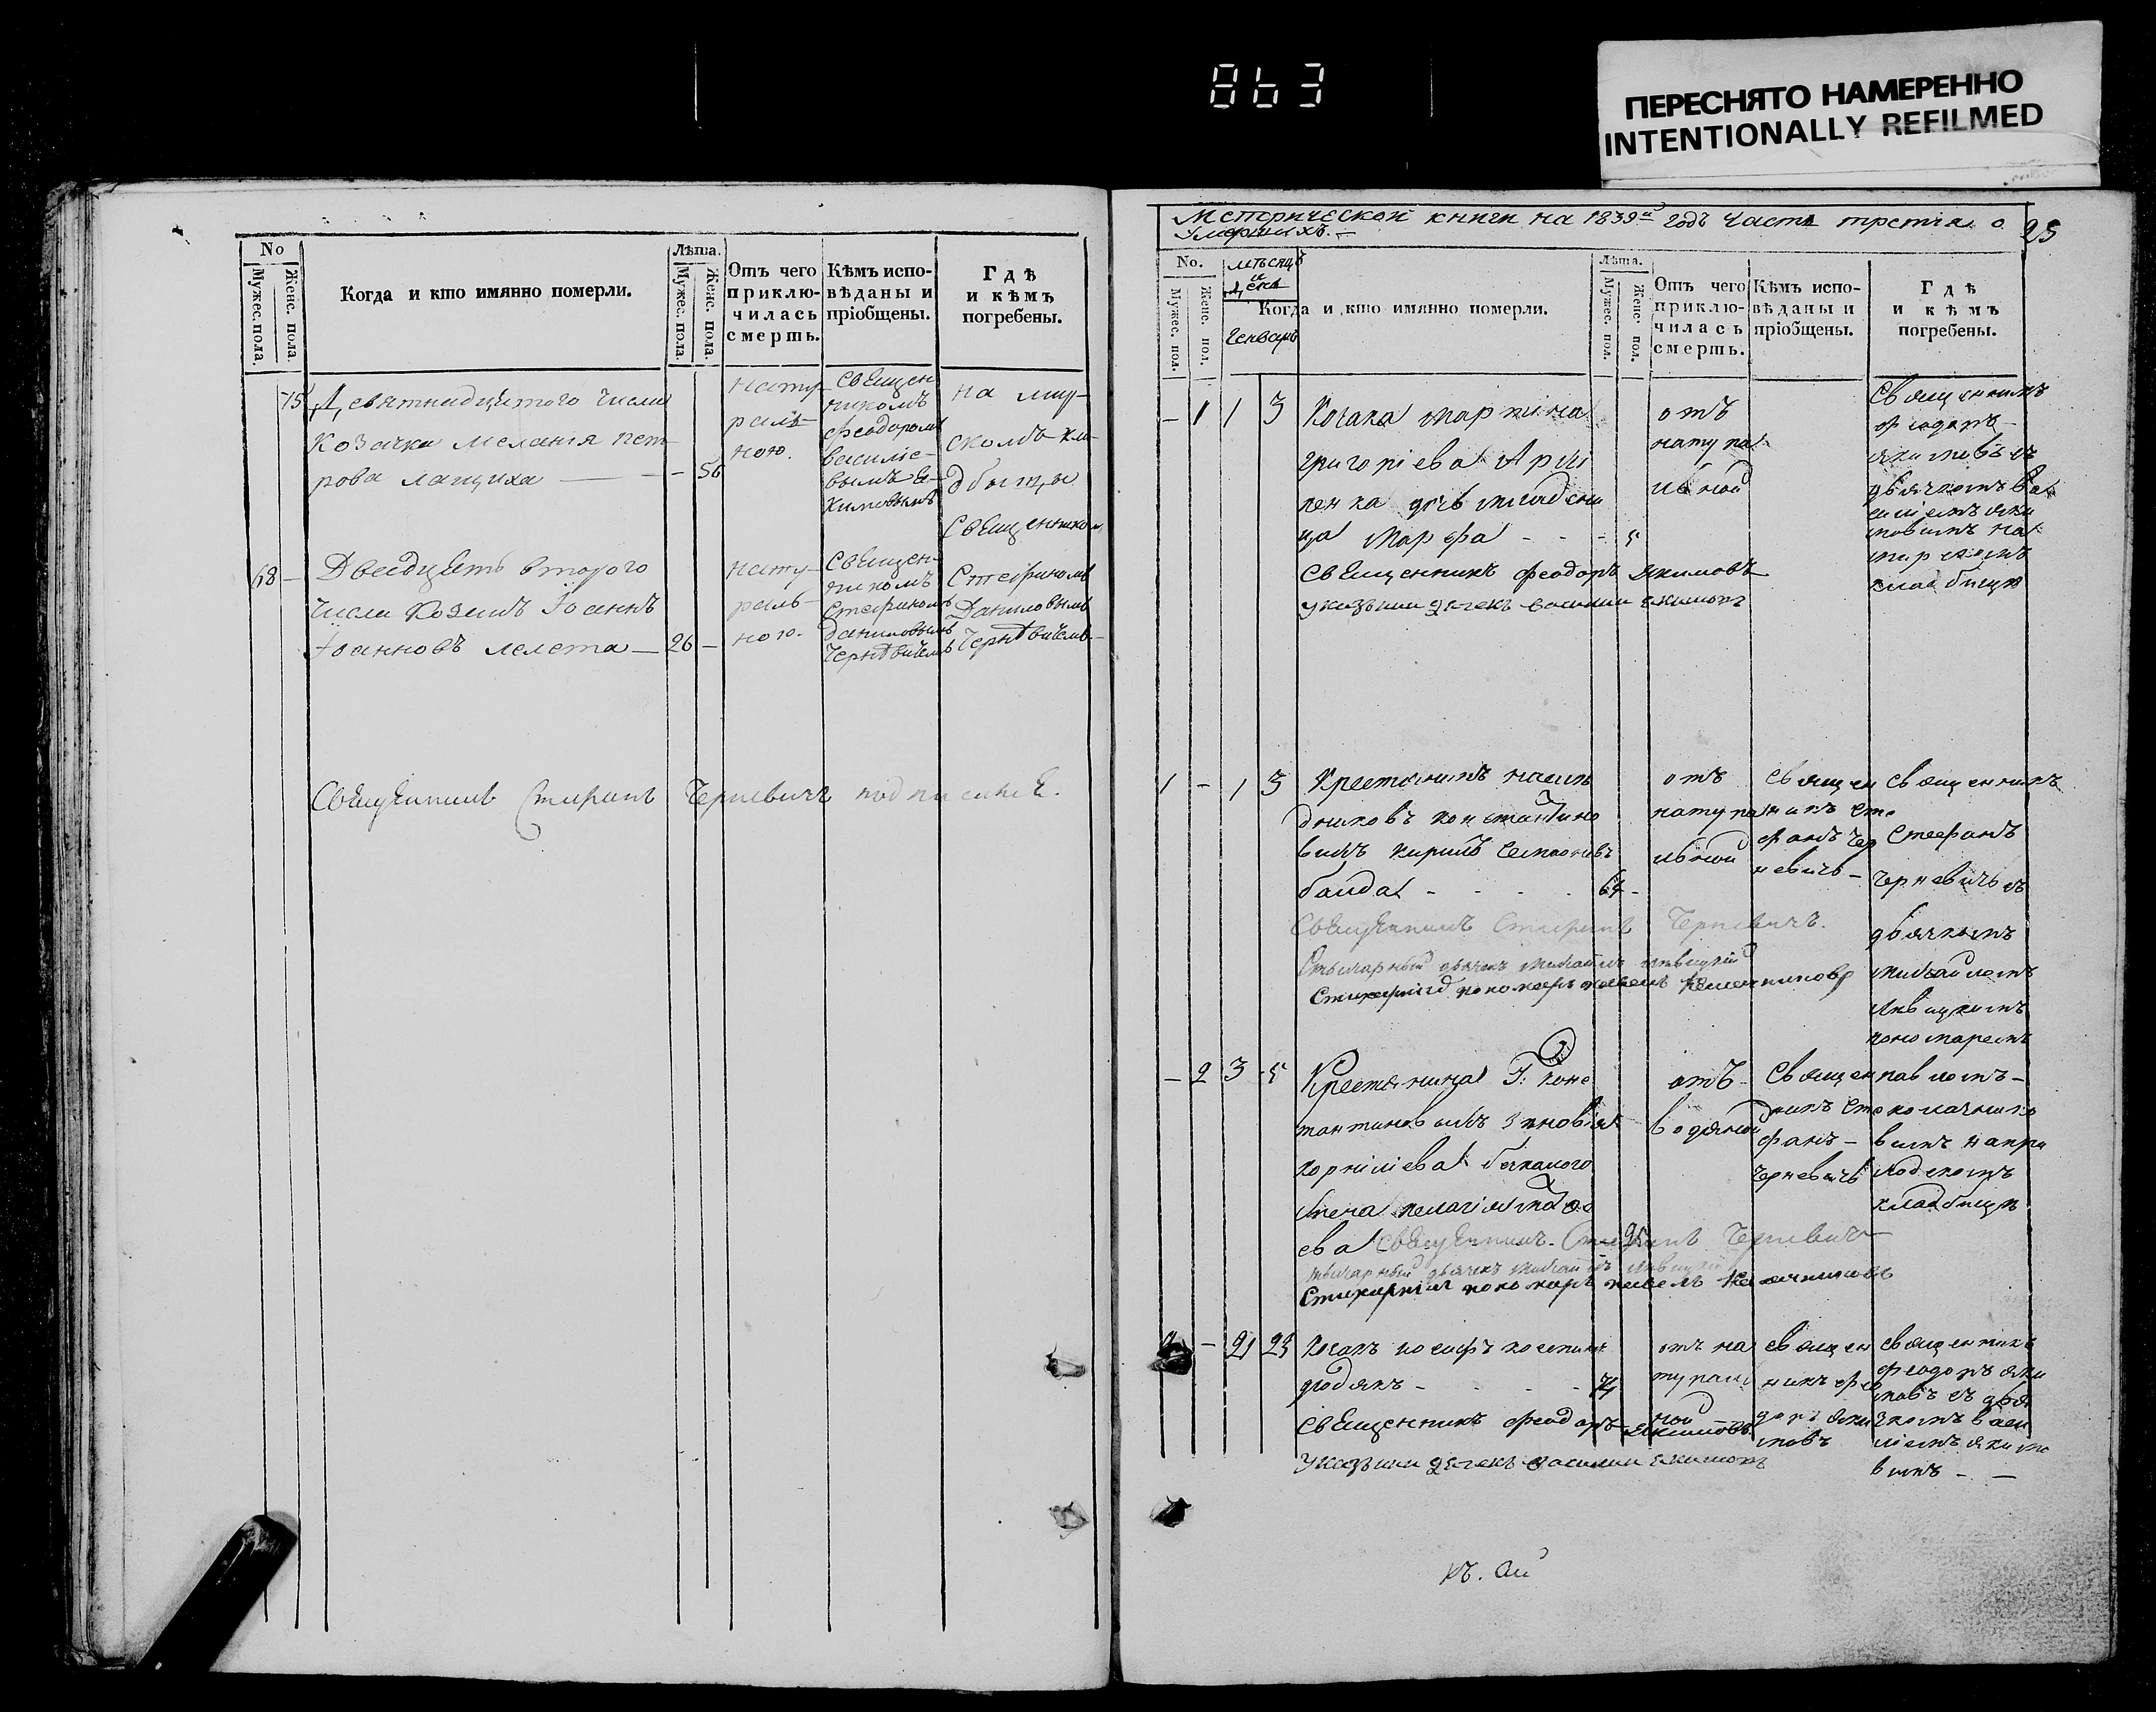 863
ПЕРЕСНЯТО НАМЕРЕННО
INTENTIONALLY REFILMED
No
Мужес. пола.
Женс. пола.
Когда и кто имянно померли.
Лѣта.
Мужес. пола.
Женс. пола.
Отъ чего
приклю-
чилась
смерть.
Кѣмъ испо-
вѣданы и
пріобщены.
Гдѣ
и кѣмъ
погребены.
75
Девятнадцатого числа
Козачка Меланія пет-
рова лащиха — — 56
нату-
раль-
ною.
Священ-
никомъ
Феодоромъ
василіе-
вымъ Я-
кимовымъ
на
скомъ кла-
дбыщы
Священником
68 —
Двадцать второго
числа Козакъ Іоаннъ
Іоанновъ лелета — 26 —
нату-
раль-
ною.
Священ-
никомъ
Стефаномъ
Даниловымъ
Черневичемъ
Стефаномъ
Даниловымъ
Черневичемъ
Священникъ Стефанъ Черневичъ
Метрической книги на 1839й годъ часть третія о
Умершихъ. —
25
No.
Мужес. пол.
Женс. пол.
мѣсяцъ
и
день
Генварь
Когда и кто имянно померли.
Лѣта.
Мужес. пол.
Женс. пол.
Отъ чего
приклю-
чилась
смерть.
Кѣмъ испо-
вѣданы и
пріобщены.
Гдѣ
и кѣмъ
погребены.
— 1 1 3
Козака мартина
григоріева
пенка дочь младени
ца Марфа - - - 5
отъ
натура
льной
Священникъ
феодоръ
якимовъ съ
дьячкомъ ва
силіемъ яки
мовымъ на
кладбищѣ
Священникъ Феодоръ Якимовъ
Указный дьячекъ василий якимовъ
1 — 1 3
Крестянинъ наслѣ
дниковъ константино
вичъ кирилъ
байда - - - - 64 -
отъ
натура
льной
священ
никъ сте
фанъ чер
невичъ —
священникъ
стефанъ
черневичъ съ
дьячкомъ
михайломъ
пономаремъ
Священникъ Стефанъ Черневичъ.
Стихарный дьячекъ михаилъ
Стихарный пономаръ павелъ
— 2 3 5
Крестянина Г: конс
тантиновичъ зиновія
корнилева
жена пелагія
ева
отъ
водяной
Священ
никъ сте
фанъ —
черневичъ
павломъ —
кладбищѣ
Священникъ Стефанъ Черневичъ
Стихарный дьячекъ михаилъ
Стихарный пономаръ павелъ
2 — 21 23
Козакъ иосифъ
дюдякъ - - - -
отъ на
турал
ной
священ
никъ фео
доръ яки
мовъ
священникъ
феодоръ яки
мовъ съ дья
чкомъ васи
ліемъ якимо
вымъ — —
Священникъ феодоръ Якимовъ
Указный дьячекъ василий якимовъ